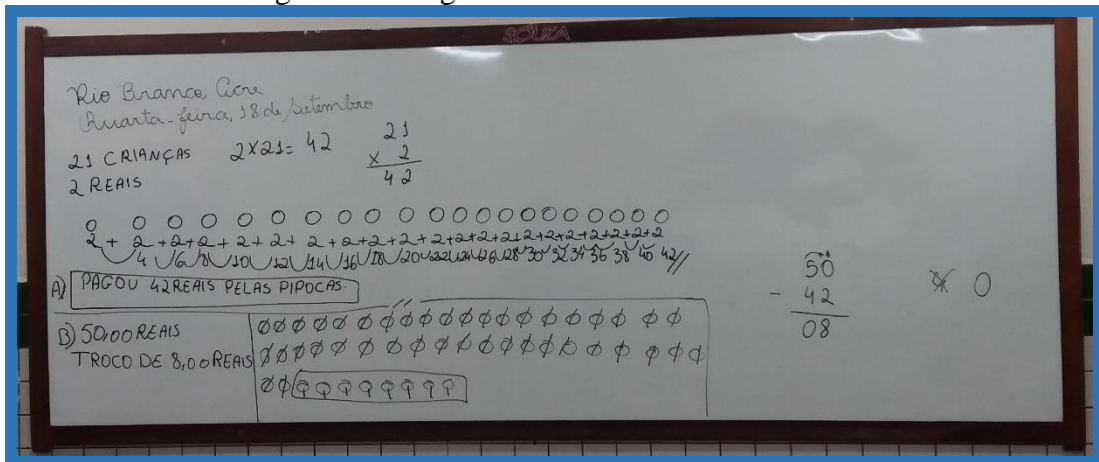 SOUZA
Rio Branco, Acre
Quarta-feira, 18 de setembro
21 CRIANÇAS 2X21= 42
2 REAIS
21
x 2
42
2 + 2 + 2 + 2 + 2 + 2 + 2 + 2 + 2 + 2 + 2 + 2 + 2 + 2 + 2 + 2 + 2 + 2 + 2 + 2 + 2
4 6 8 10 12 14 16 18 20 22 24 26 28 30 32 34 36 38 40 42//
A) PAGOU 42 REAIS PELAS PIPOCAS.
B) 50,00 REAIS
TROCO DE 8,00 REAIS
50
- 42
08
0